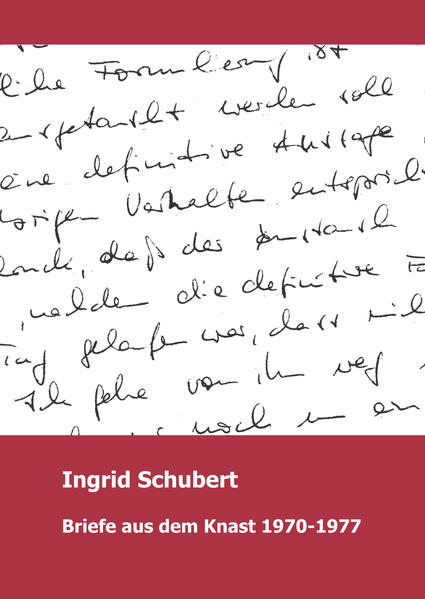 liche Formulierung ist
ausgetauscht werden soll
eine definitive Aussage
Verhalten entspricht
daß der Austausch
, nachdem die definitive
gelaufen war, dass
Ich gehe von ihm weg
noch in
Ingrid Schubert
Briefe aus dem Knast 1970-1977